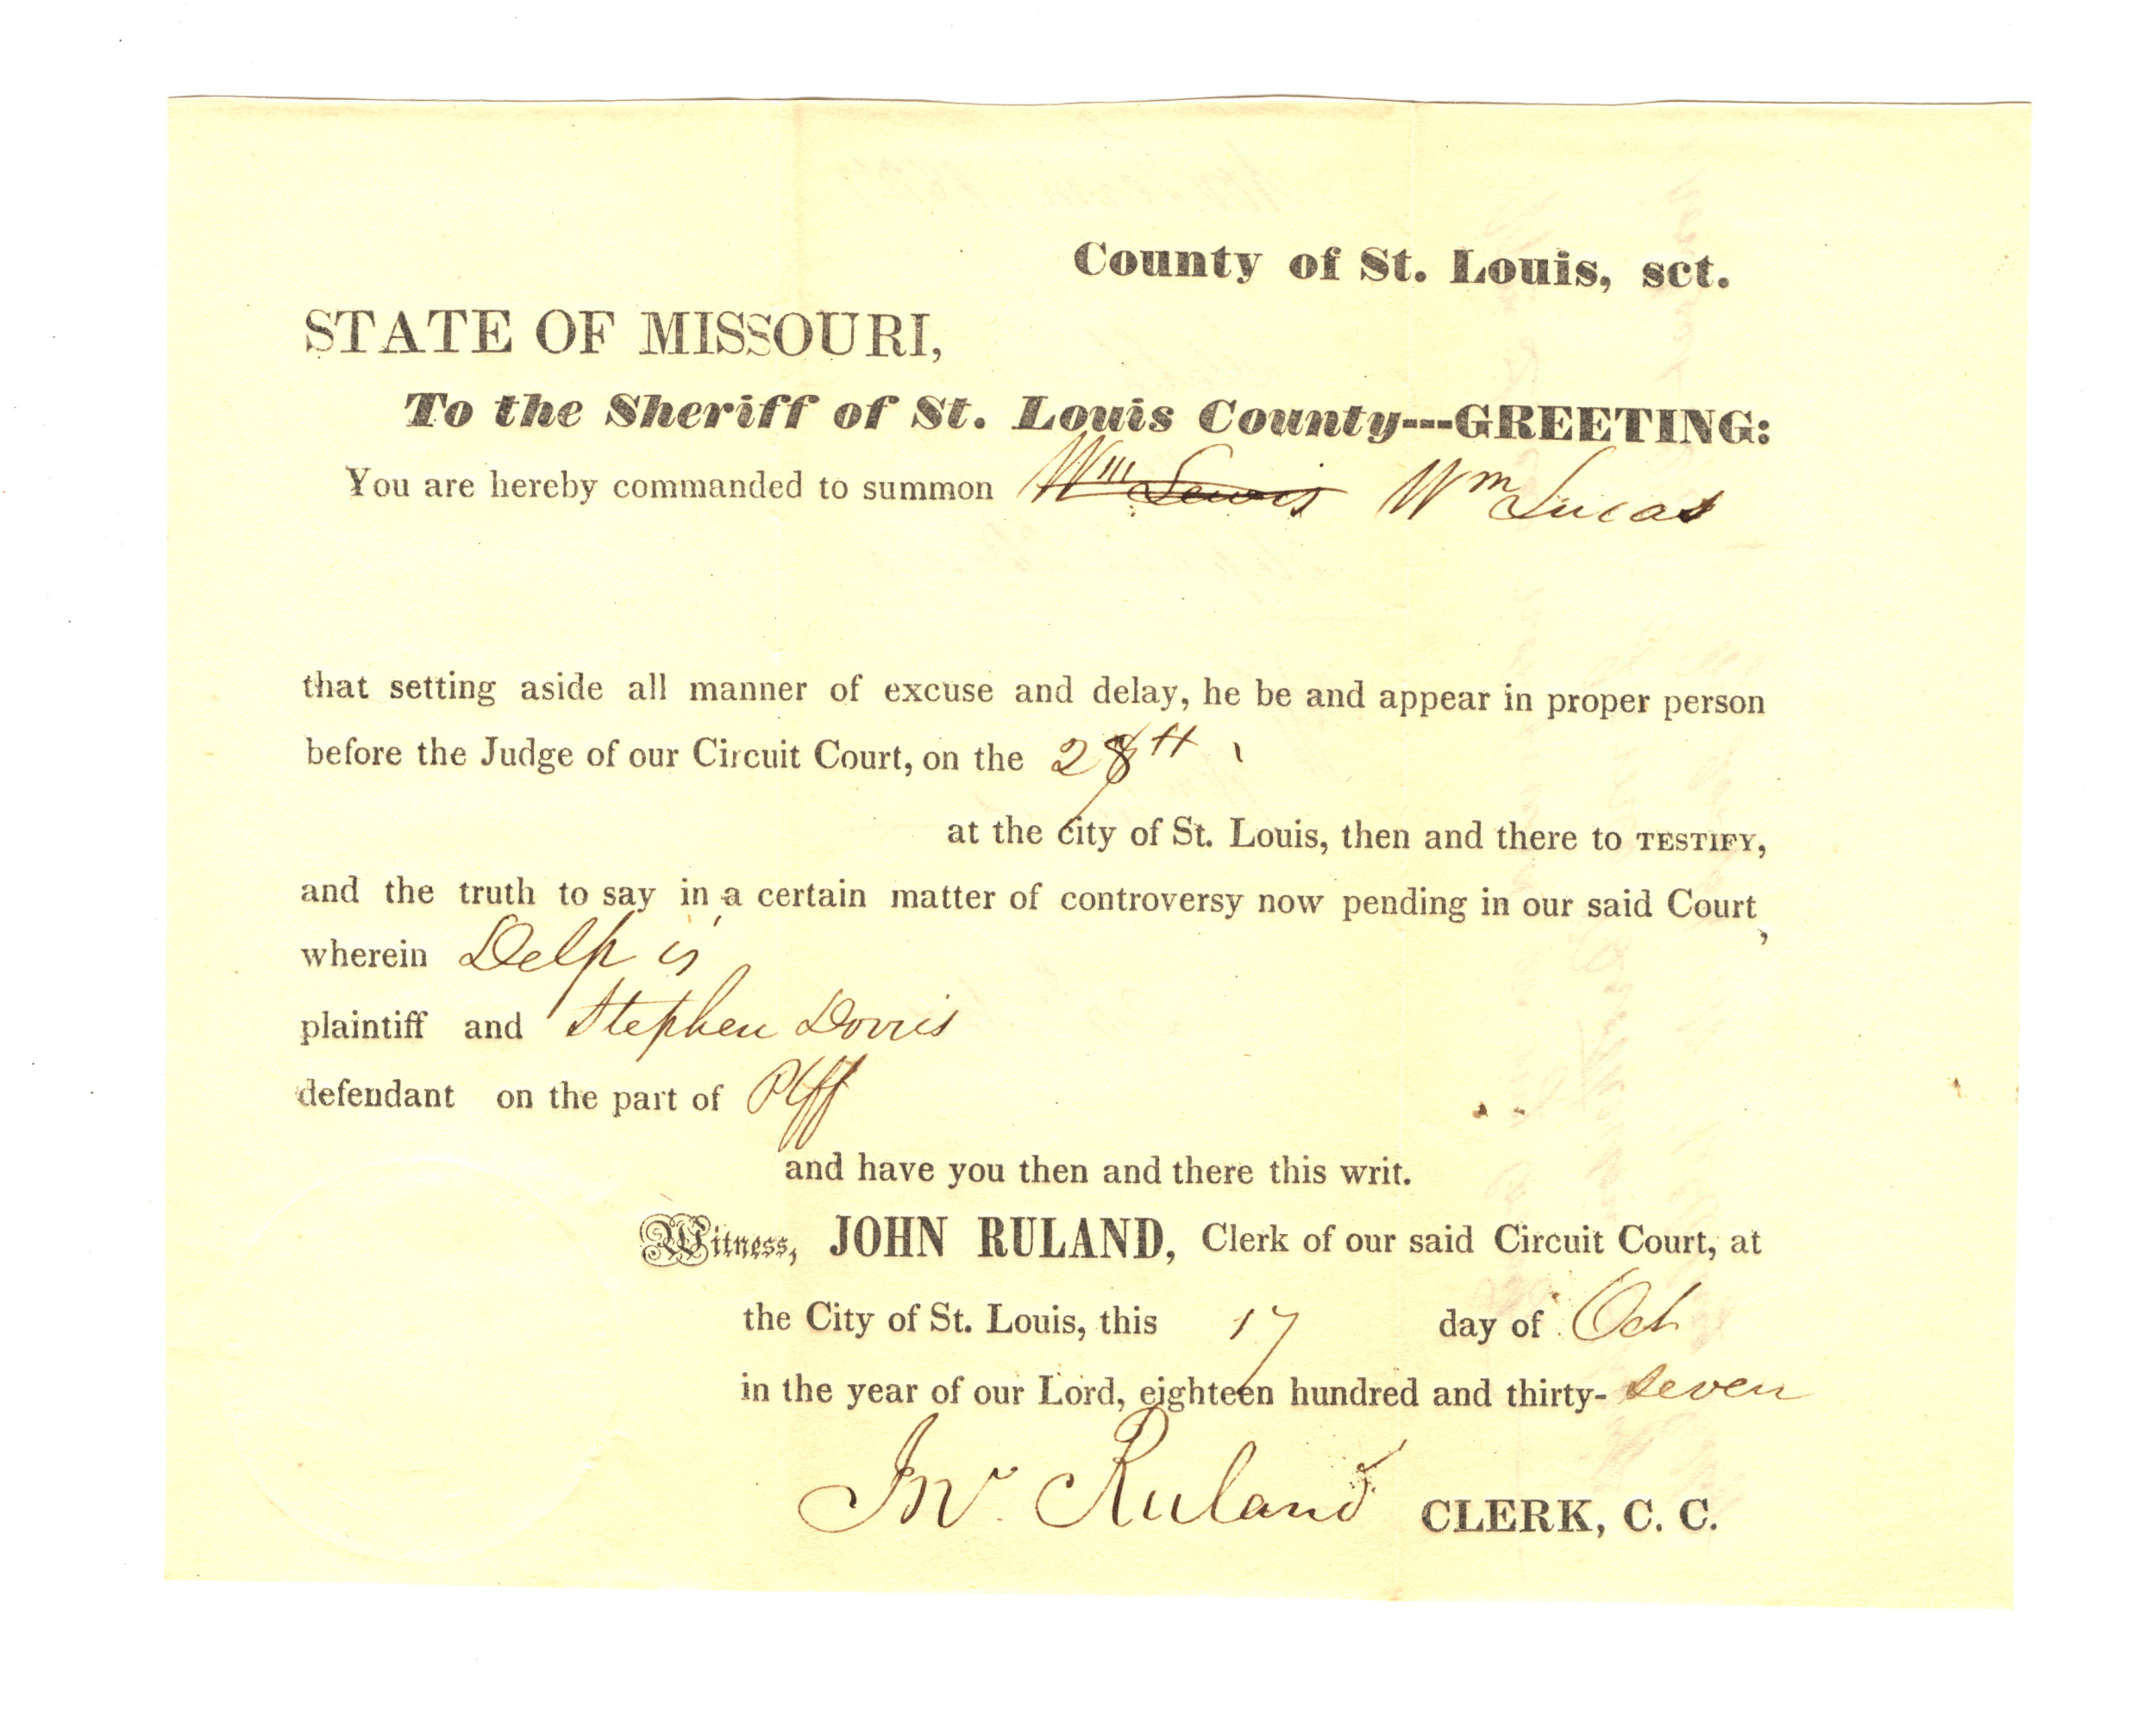 County of St. Louis, sct.
STATE OF MISSOURI,
To the Sheriff of St. Louis County---GREETING:
You are hereby commanded to summon Wm Lewis Wm Lucas
that setting aside all manner of excuse and delay, he be and appear in proper person
before the Judge of our Circuit Court, on the 28th
at the city of St. Louis, then and there to TESTIFY,
and the truth to say in a certain matter of controversy now pending in our said Court,
wherein Delph is
plaintiff and Stephen Dorris
defendant on the part of Plff
and have you then and there this writ.
Witness, JOHN RULAND, Clerk of our said Circuit Court, at
the City of St. Louis, this 17 day of Oct
in the year of our Lord, eighteen hundred and thirty-seven
Jno Ruland CLERK, C. C.